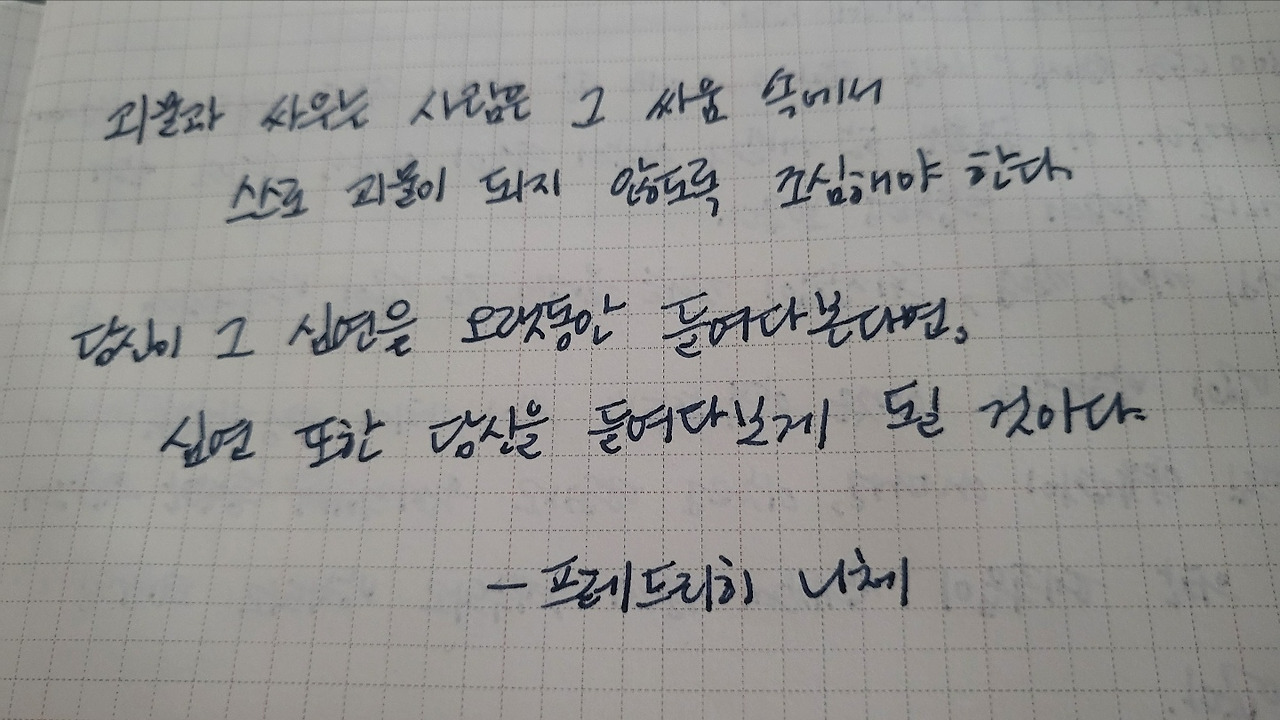 괴물과 싸우는 사람은 그 싸움 속에서
스스로 괴물이 되지 않도록 조심해야 한다.
당신이 그 심연을 오랫동안 들여다본다면,
심연 또한 당신을 들여다보게 될 것이다.
- 프레드리히 니체